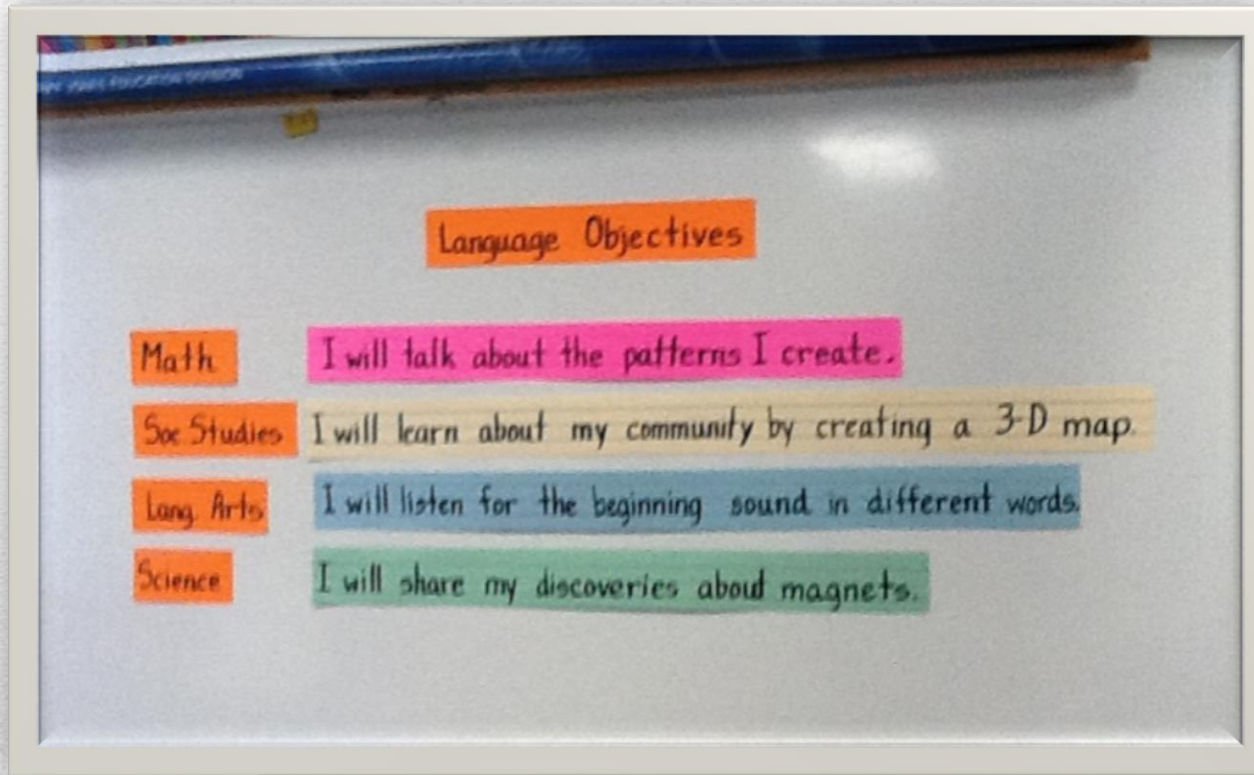 Language Objectives
Math I will talk about the patterns I create.
Soc Studies I will learn about my community by creating a 3-D map.
Lang. Arts I will listen for the beginning sound in different words.
Science I will share my discoveries about magnets.